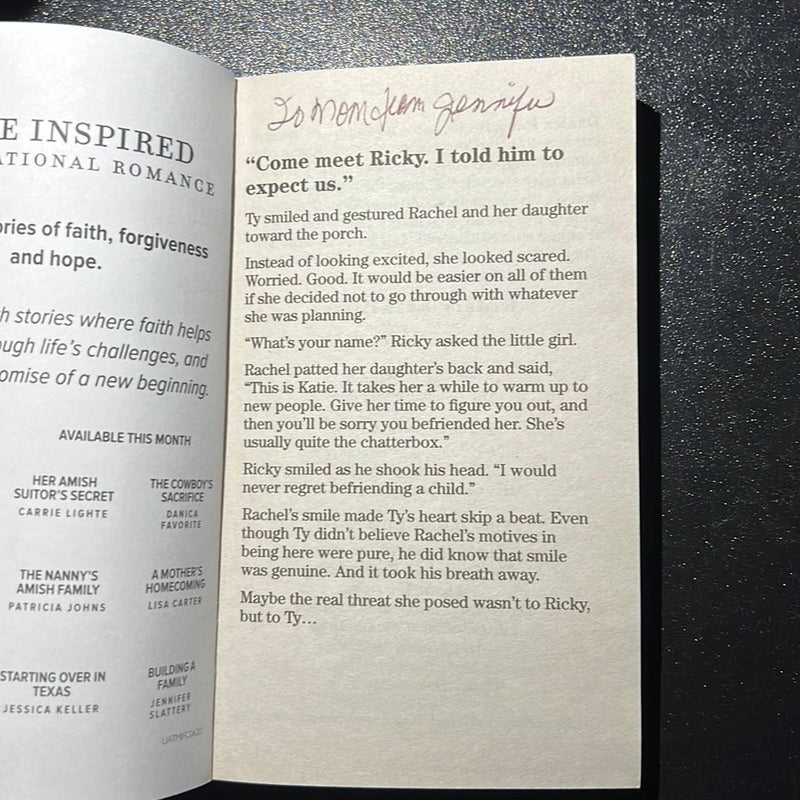 E INSPIRED
ATIONAL ROMANCE
ories of faith, forgiveness
and hope.
h stories where faith helps
ugh life's challenges, and
omise of a new beginning.
AVAILABLE THIS MONTH
HER AMISH
SUITOR'S SECRET
CARRIE LIGHTE
THE COWBOY'S
SACRIFICE
DANICA
FAVORITE
THE NANNY'S
AMISH FAMILY
PATRICIA JOHNS
A MOTHER'S
HOMECOMING
LISA CARTER
STARTING OVER IN
TEXAS
JESSICA KELLER
BUILDING A
FAMILY
JENNIFER
SLATTERY
LIATMIFC0620
To Mom from Jennifer
“Come meet Ricky. I told him to
expect us.”
Ty smiled and gestured Rachel and her daughter
toward the porch.
Instead of looking excited, she looked scared.
Worried. Good. It would be easier on all of them
if she decided not to go through with whatever
she was planning.
“What’s your name?” Ricky asked the little girl.
Rachel patted her daughter’s back and said,
“This is Katie. It takes her a while to warm up to
new people. Give her time to figure you out, and
then you’ll be sorry you befriended her. She’s
usually quite the chatterbox.”
Ricky smiled as he shook his head. “I would
never regret befriending a child.”
Rachel’s smile made Ty’s heart skip a beat. Even
though Ty didn’t believe Rachel’s motives in
being here were pure, he did know that smile
was genuine. And it took his breath away.
Maybe the real threat she posed wasn’t to Ricky,
but to Ty…